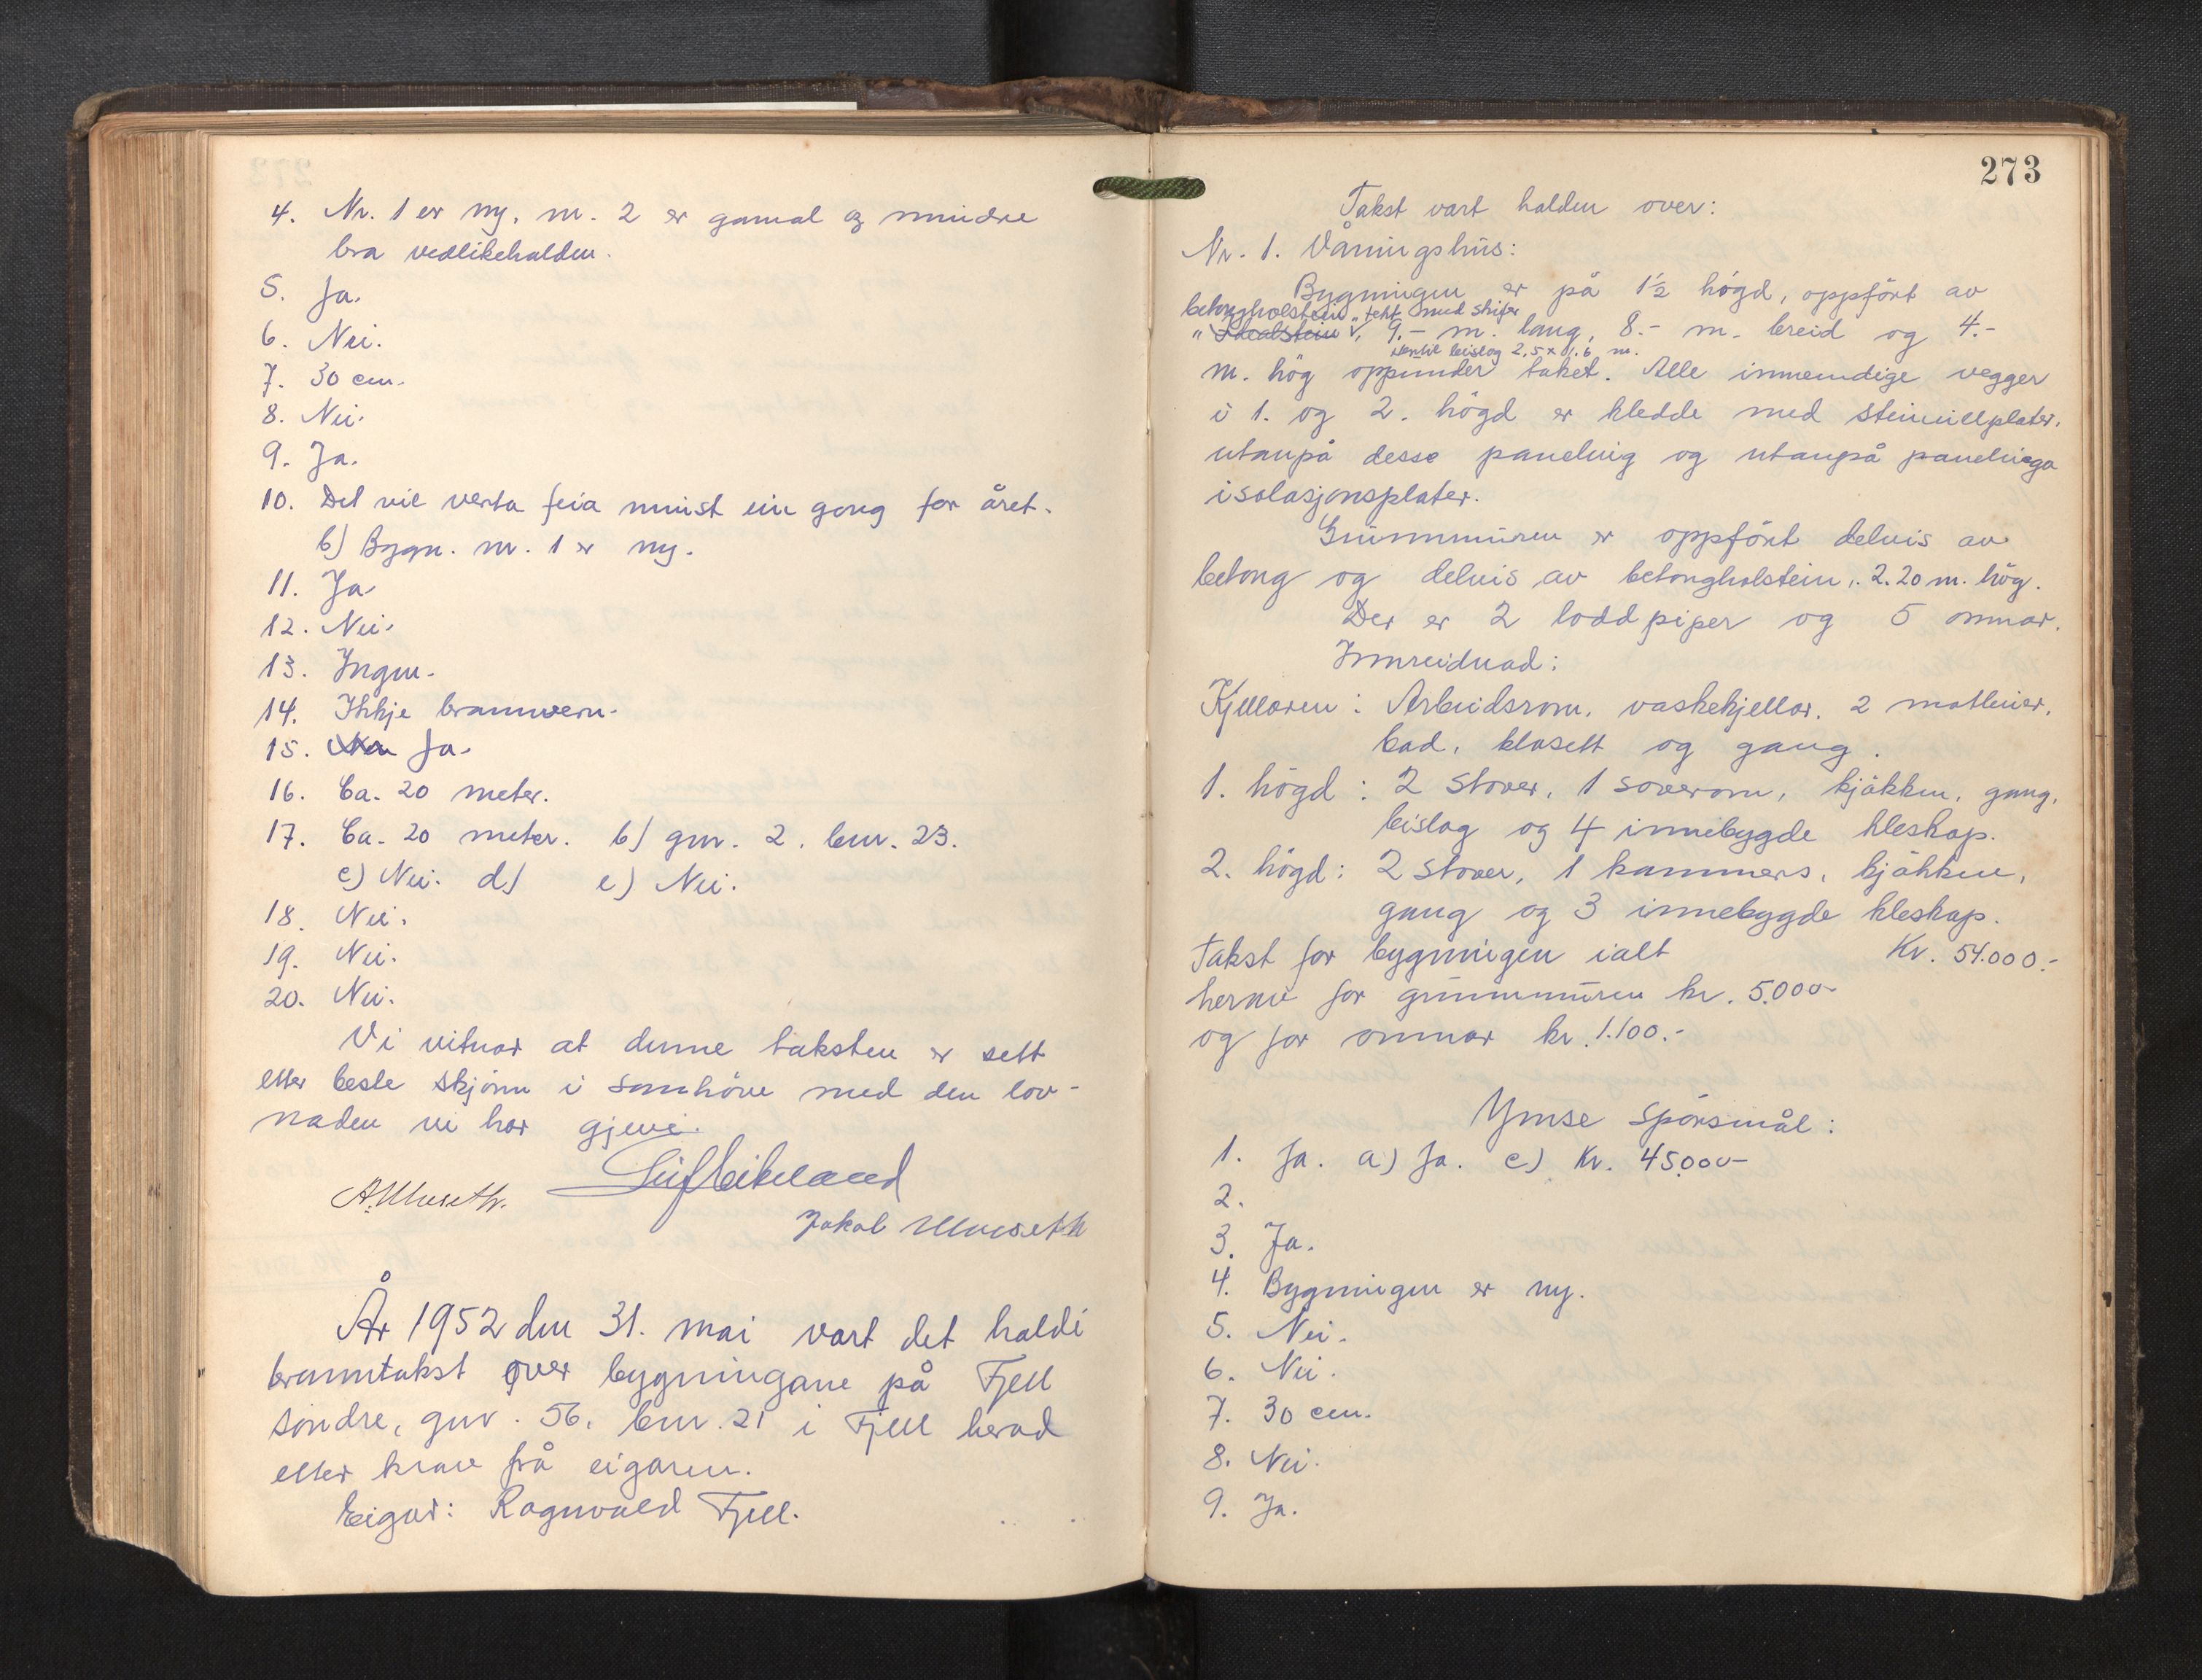 4. Nr. 1 er ny, nr. 2 er gamal og mindre
bra vedlikehalden.
5. Ja.
6. Nei.
7. 30 cm.
8. Nei.
9. Ja.
10. Det vil verta feia minst ein gong for året.
b) Bygn. nr. 1 er ny.
11. Ja
12. Nei.
13. Ingen.
14. Ikkje brannvern.
15. Ja.
16. Ca. 20 meter.
17. Ca. 20 meter. b) gnr. 2. bnr. 23.
c) Nei. d) e) Nei.
18. Nei.
19. Nei.
20. Nei.
Vi vitnar at denne taksten er sett
etter beste skjönn i samhöve med den lov-
naden vi har gjevi.
Jakob Ulveseth
År 1952 den 31. mai vart det haldi
branntakst over bygningane på Fjell
söndre, gnr. 56, bnr. 21 i Fjell herad
etter krav frå eigaren.
Eigar: Ragnvald Fjell.
273
Takst vart halden over:
Nr. 1. Våningshus:
Bygningen er på 1½ högd, oppfört av
betongholstein, tekt med skifer
9.- m. lang, 8.- m. breid og 4.-
bislag 2,5 x 1.6 m.
m. hög oppunder taket. Alle innvendige vegger
i 1. og 2. högd er kledde med steinullplater,
utanpå desse paneling og utanpå panelinga
isolasjonsplater.
Grunnmuren er oppfört delvis av
betong og delvis av betongholstein, 2.20 m. hög.
Der er 2 loddpiper og 5 omnar.
Innreidnad:
Kjellaren: Arbeidsrom, vaskekjellar, 2 matbuer,
bad, klosett og gang.
1. högd: 2 stover, 1 soverom, kjökken, gang,
bislag og 4 innebygde kleskap.
2. högd: 2 stover, 1 kammers, kjökken,
gang og 3 innebygde kleskap.
Takst for bygningen ialt Kr. 54.000.-
herav for grunnmuren kr. 5.000-
og for omnar kr. 1.100.-
Ymse spörsmål:
1. Ja. a) Ja. c) Kr. 45.000-
2.
3. Ja.
4. Bygningen er ny.
5. Nei.
6. Nei.
7. 30 cm.
8. Nei.
9. Ja.